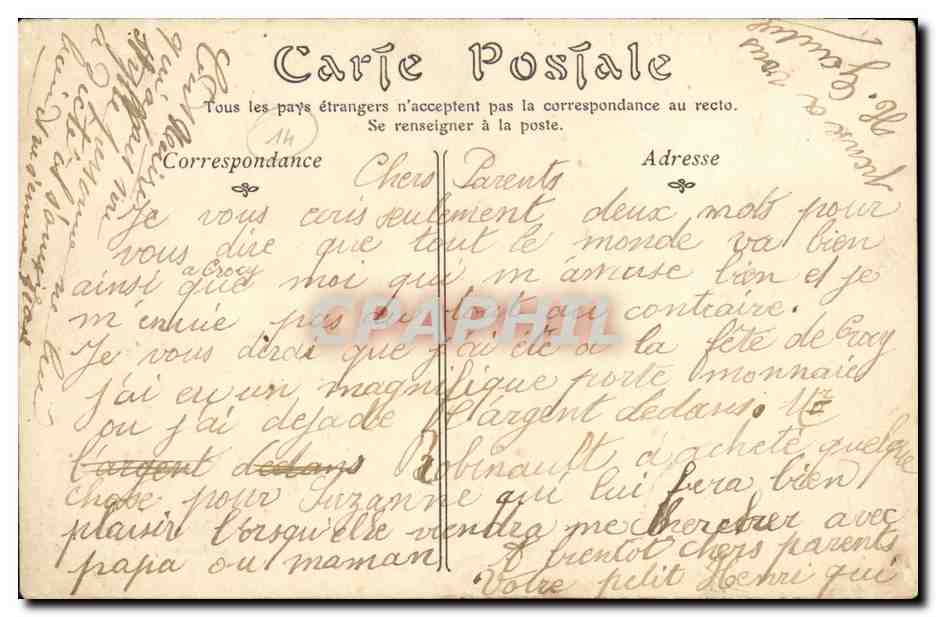 Carte Postale
Tous les pays étrangers n'acceptent pas la correspondance au recto.
Se renseigner à la poste.
14
Correspondance
Adresse
Chers Parents
Je vous ecris seulement deux mots pour
vous dire que tout le monde va bien
a Crocy
ainsi que moi qui m'amuse bien et je
m'ennuie pas du tout au contraire.
Je vous dirai que j'ai été a la fête de Crocy
j'ai eu un magnifique porte monnaie
ou j'ai deja de l'argent dedans. Mr
l'argent dedans Robinault a acheté quelque
chose pour Suzanne qui lui fera bien
plaisir lorsqu'elle viendra me chercher avec
papa ou maman
A bientot chers parents
Votre petit Henri qui
pense a vous
H.
CPAPHIL